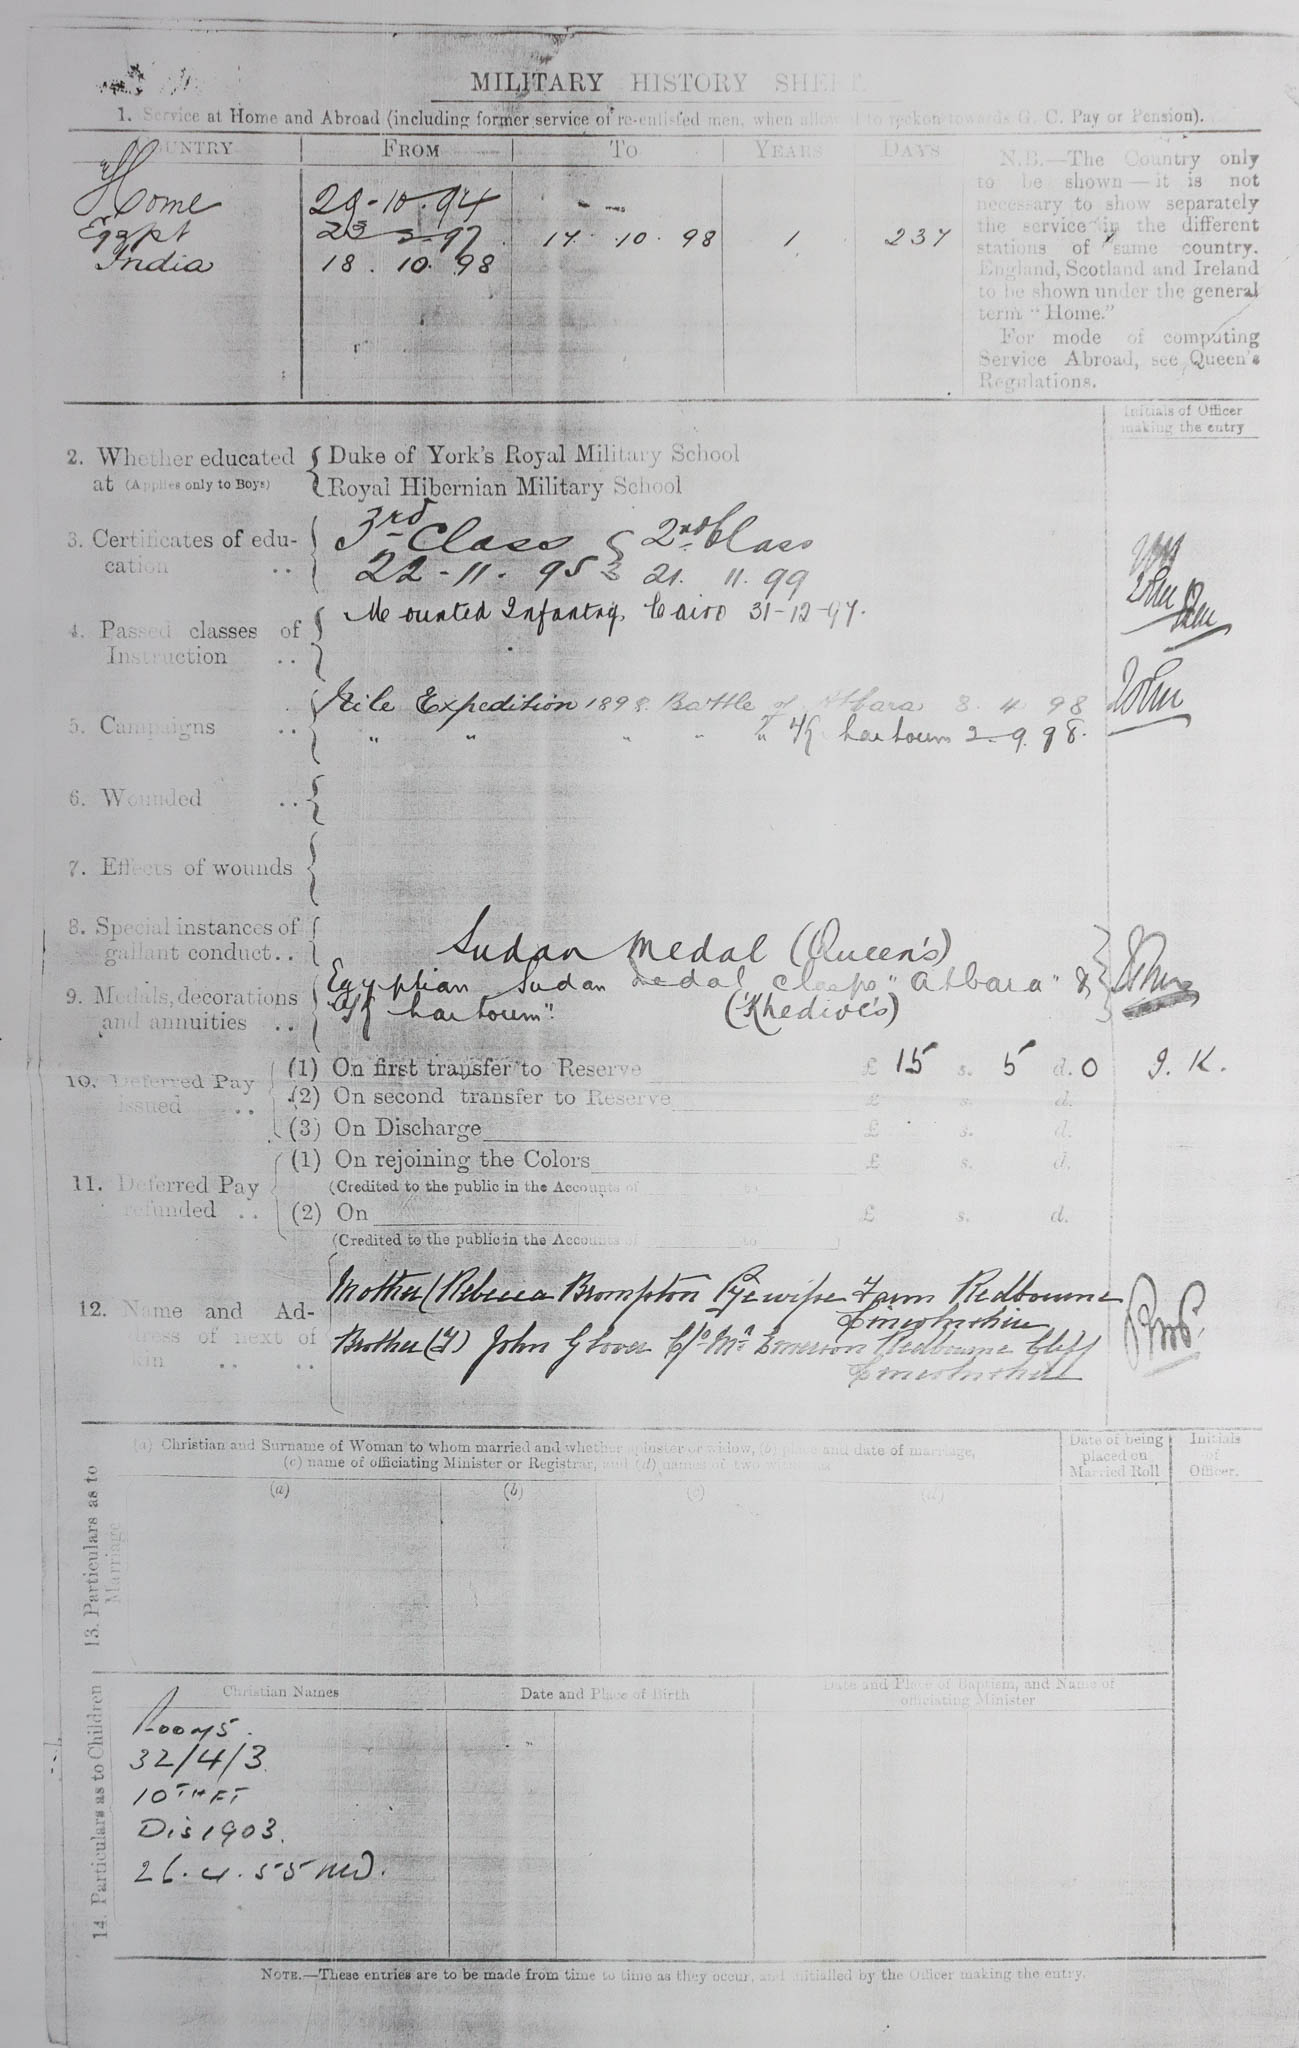 MILITARY HISTORY SHEET
1. Service at Home and Abroad (including former service of re-enlisted men, when allowed to reckon towards G. C. Pay or Pension).
COUNTRY FROM TO YEARS DAYS
Home 29-10-94
Egypt 23 2-97 17 10 98 1 237
India 18 10 98
N.B.—The Country only
to be shown—it is not
necessary to show separately
the service in the different
stations of same country.
England, Scotland and Ireland
to be shown under the general
term "Home."
For mode of computing
Service Abroad, see Queen's
Regulations.
Initials of Officer
making the entry
2. Whether educated
at (Applies only to Boys)
Duke of York's Royal Military School
Royal Hibernian Military School
3. Certificates of edu-
cation ..
3rd Class 2nd Class
22-11. 95 21. 11. 99
4. Passed classes of
Instruction ..
Mounted Infantry, Cairo 31-12-97.
5. Campaigns ..
Nile Expedition 1898. Battle of Atbara 8. 4. 98
" " " " " Khartoum 2-9. 98.
6. Wounded ..
7. Effects of wounds
8. Special instances of
gallant conduct..
9. Medals, decorations
and annuities ..
Sudan Medal (Queen's)
Egyptian Sudan medal clasps "Atbara" &
"Khartoum". (Khedive's)
10. Deferred Pay
issued ..
(1) On first transfer to Reserve £ 15 s. 5 d. 0 J. K.
(2) On second transfer to Reserve £ s. d.
(3) On Discharge £ s. d.
11. Deferred Pay
refunded ..
(1) On rejoining the Colors £ s. d.
(Credited to the public in the Accounts of to
(2) On £ s. d.
(Credited to the public in the Accounts of to )
12. Name and Ad-
dress of next of
kin .. ..
Mother (Rebecca Brompton Pyewipe Farm Redbourne
Lincolnshire
Brother (F) John Glover C/o Mr Emerson Redbourne Cliff
Lincolnshire
13. Particulars as to
Marriage
(a) Christian and Surname of Woman to whom married and whether spinster or widow, (b) place and date of marriage,
(c) name of officiating Minister or Registrar, and (d) names of two witnesses
(a) (b) (c) (d)
Date of being
placed on
Married Roll
Initials
of
Officer.
14. Particulars as to Children
Christian Names Date and Place of Birth Date and Place of Baptism, and Name of
officiating Minister
32/4/3
10TH FT
Dis 1903.
26. 4. 55
NOTE.—These entries are to be made from time to time as they occur, and initialled by the Officer making the entry.